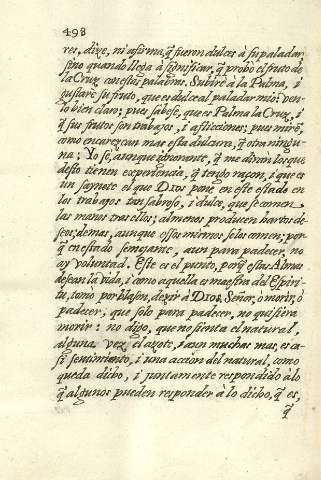 498
res, dize, ni afirma, q̃ fueron dulces à su paladar
sino quando llega à significar, q̃ probò el fruto de
la Cruz con estas palabras, Subirè à la Palma, i
gustarè su fruto, que es dulce al paladar mio: ven-
lo bien claro; pues sabese, que es Palma la Cruz, i
q̃ sus frutos son trabajos, i aflicciones: pues miren,
como encarezcan mas esta dulçura, q̃ otra ningu-
na; Yo sè, aunque ignorante, q̃ me diran los que
desto tienen experiencia, q̃ tengo raçon, i que es
un saynete el que DIOS pone en este estado en
los trabajos tan sabroso, i dulce, que se comen
las manos tras ellos; almenos producen hartos de-
seos; demas, aunque ossos mismos se los comen; por
q̃ en estado semejante, aun para padecer, no
ay voluntad. Este es el punto, porq̃ estas Almas
desean la vida, i como aquella es maestra del Espiri-
tu, tomò por blason, dezir à DIOS, Señor, ò morir, ò
padecer; que solo para padecer, no quisiera
morir: no digo, que no sienta el natural,
alguna vez el azote, i aun muchas mas, es ca-
si sentimiento, i una accion del natural, como
queda dicho, i juntamente respondido à lo
q̃ algunos pueden responder à lo dicho, q̃ es,
q̃